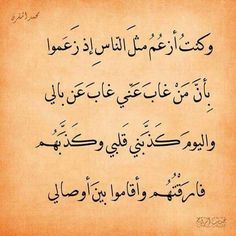 وكنتُ أزعُمُ مثلَ الناسِ إذ زَعَموا
بِأنَّ مَنْ غابَ عَنّي غابَ عَن بالي
واليومَ كَذَّبَني قلبي وكَذَّبَهُم
فارَقْتُهُم وأقاموا بينَ أوصالي